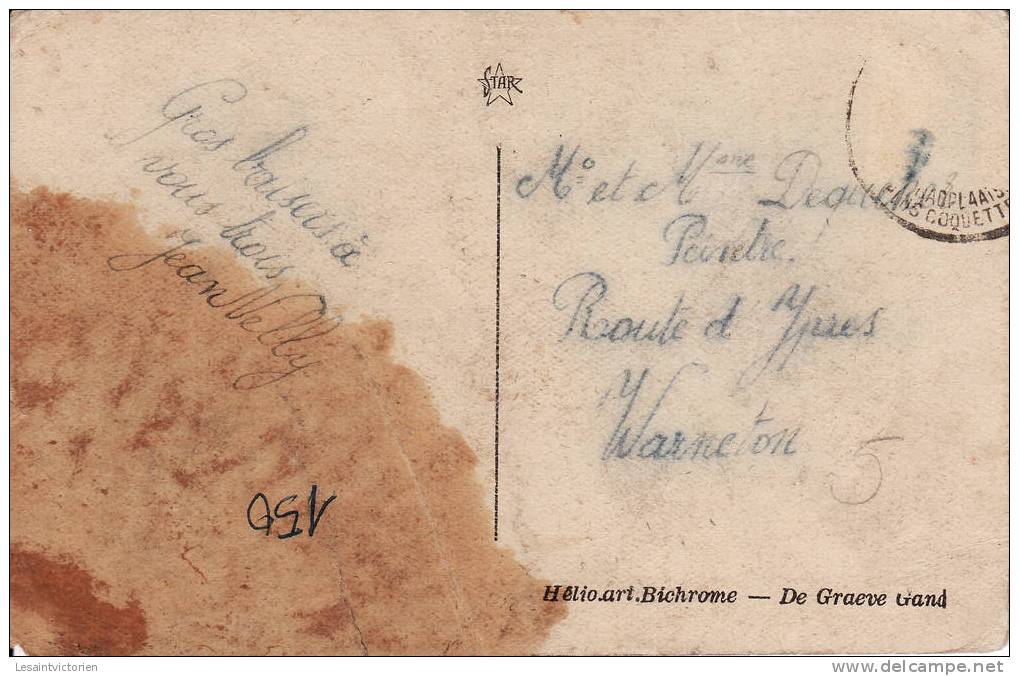 STAR
Gros baisers à
vous trois
Jean Nelly
150
Mr et Mme
Peintre.
Route d'Ypres
Warneton
5
COQUETTE
Hélio.art.Bichrome — De Graeve Gand
Lesaintvictorien
delcampe.net